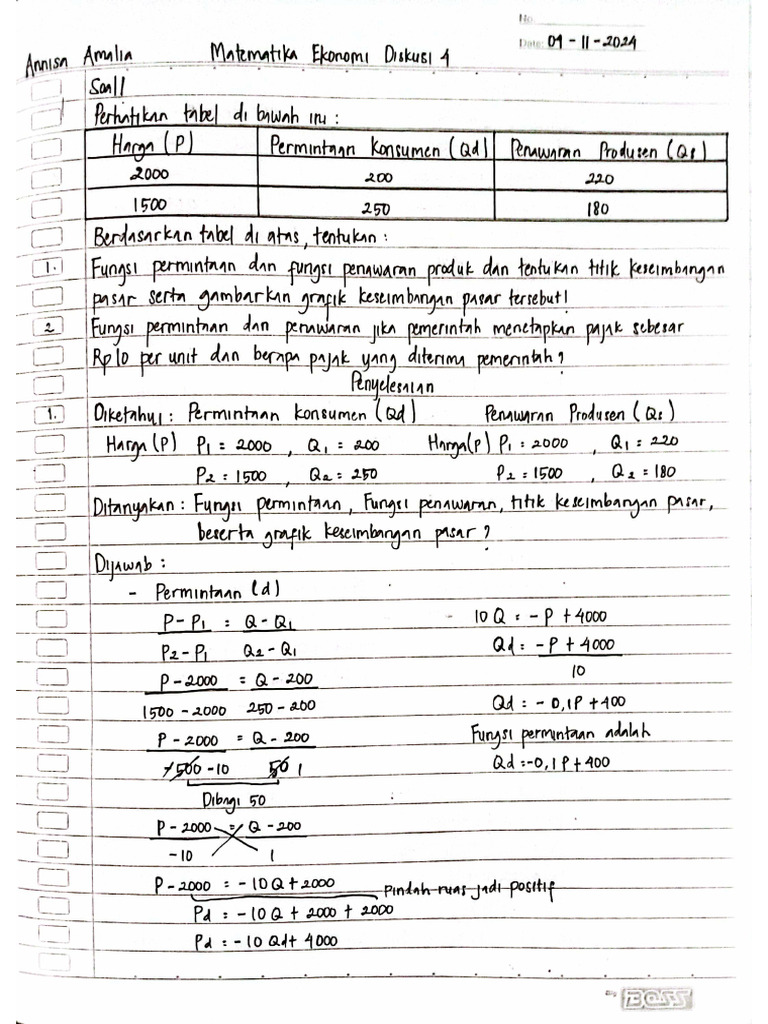 No.
Date: 09-11-2024
Annisa Amalia Matematika Ekonomi Diskusi 4
Soal!
Perhatikan tabel di bawah ini :
Harga (P) Permintaan Konsumen (Qd) Penawaran Produsen (Qs)
2000 200 220
1500 250 180
Berdasarkan tabel di atas, tentukan :
1. Fungsi permintaan dan fungsi penawaran produk dan tentukan titik keseimbangan
pasar serta gambarkan grafik keseimbangan pasar tersebut!
2 Fungsi permintaan dan penawaran jika pemerintah menetapkan pajak sebesar
Rp10 per unit dan berapa pajak yang diterima pemerintah?
Penyelesaian
1. Diketahui : Permintaan Konsumen (Qd) Penawaran Produsen (Qs)
Harga (P) P1 = 2000 , Q1 = 200 Harga(P) P1 : 2000 , Q1 = 220
P2 = 1500 , Q2 = 250 P2 = 1500 , Q2 = 180
Ditanyakan : Fungsi permintaan, Fungsi penawaran, titik keseimbangan pasar,
beserta grafik keseimbangan pasar ?
Dijawab :
- Permintaan (d)
P - P1 = Q - Q1
P2 - P1 Q2 - Q1
P - 2000 = Q - 200
1500 - 2000 250 - 200
P - 2000 = Q - 200
-500 -10 50 1
Dibagi 50
P - 2000 = Q - 200
-10 1
P - 2000 = -10Q + 2000 pindah ruas jadi positif
Pd = -10Q + 2000 + 2000
Pd = -10 Qd + 4000
- 10 Q = -P + 4000
Qd = -P + 4000
10
Qd = - 0,1P + 400
Fungsi permintaan adalah
Qd = -0,1P + 400
BOSS